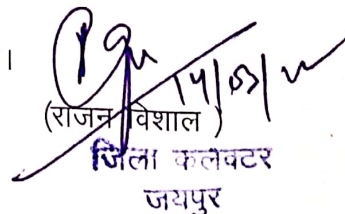 ।
14/03/22
(राजन विशाल)
जिला कलेक्टर
जयपुर